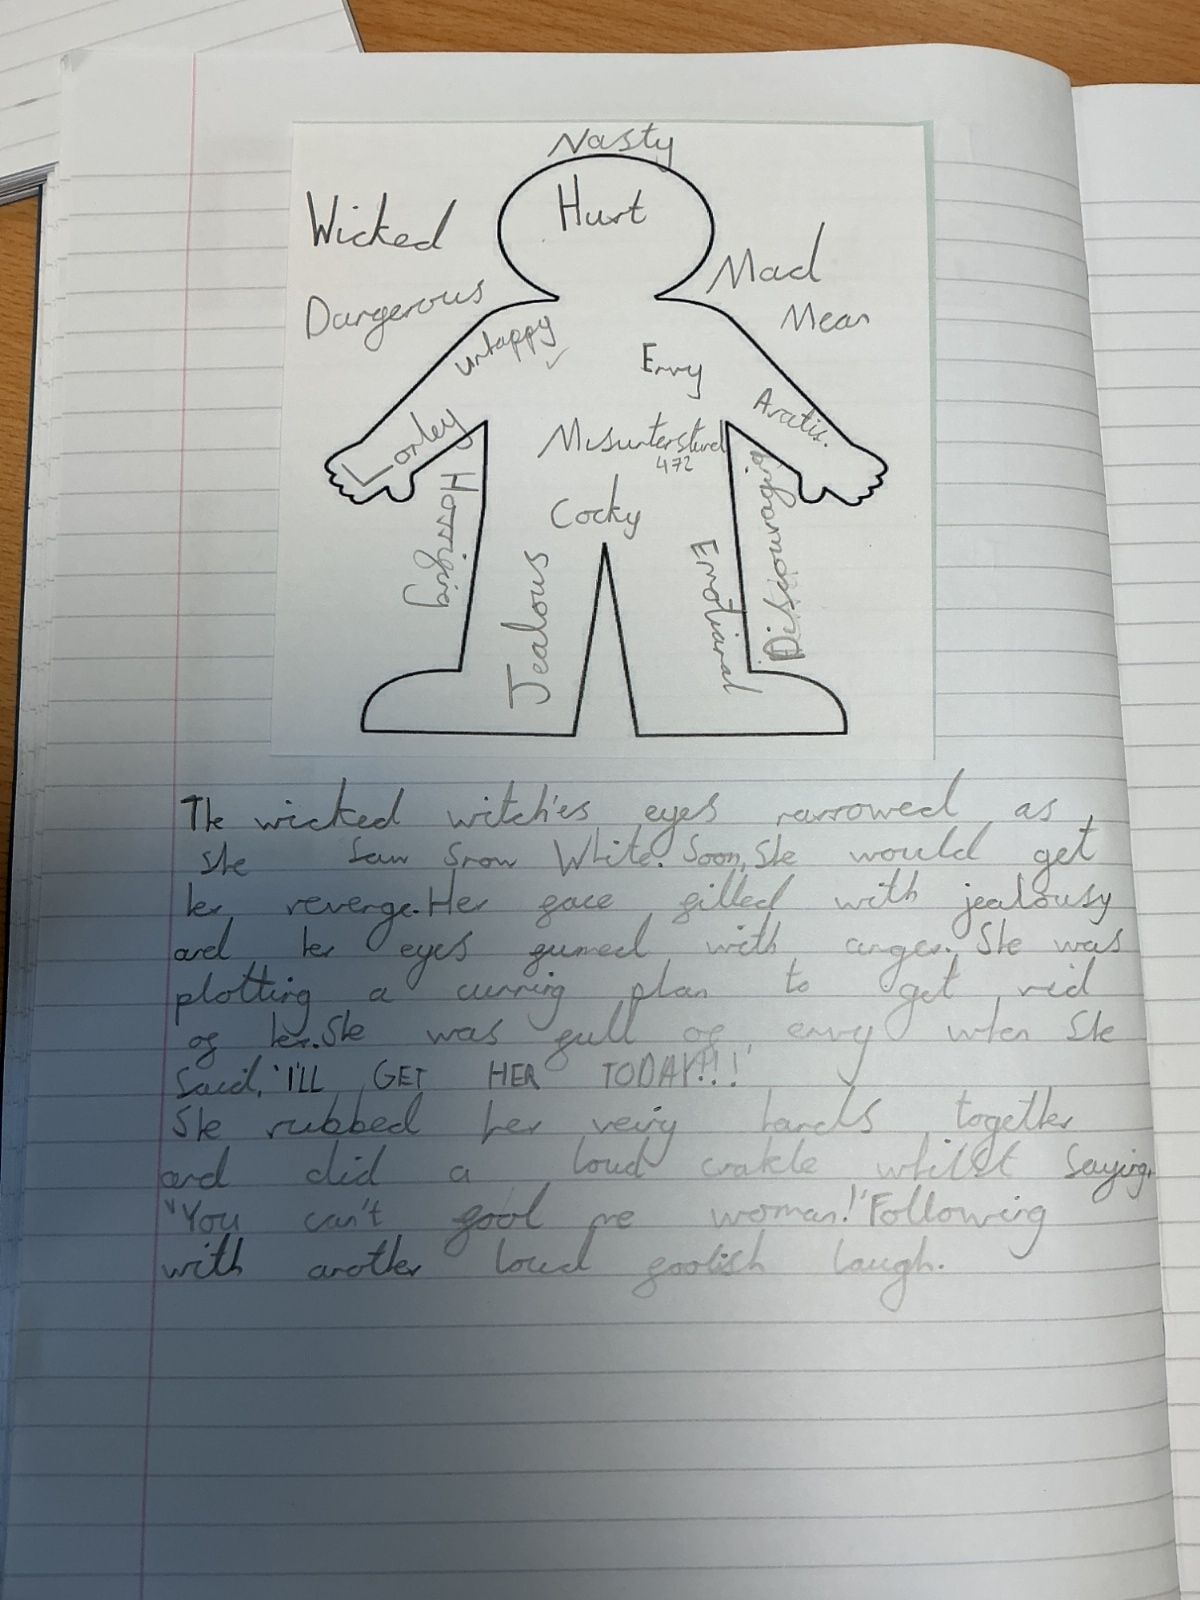 Nasty
Hurt
Wicked
Mad
Dangerous
Mean
unhappy
Envy
Lonley
Misunterstund
472
Horrifying
Cocky
Discouraging
Jealous
Emotional
The wicked witch'es eyes narrowed as
she saw Snow White. Soon, She would get
her revenge. Her face filled with jealousy
and her eyes fumed with anger. She was
plotting a cunning plan to get rid
of her. She was full of envy when She
Said, 'I'LL GET HER TODAY!!!'
She rubbed her veiny hands together
and did a loud crakle whilst Saying,
"You can't fool me woman!" Following
with another loud foolish laugh.